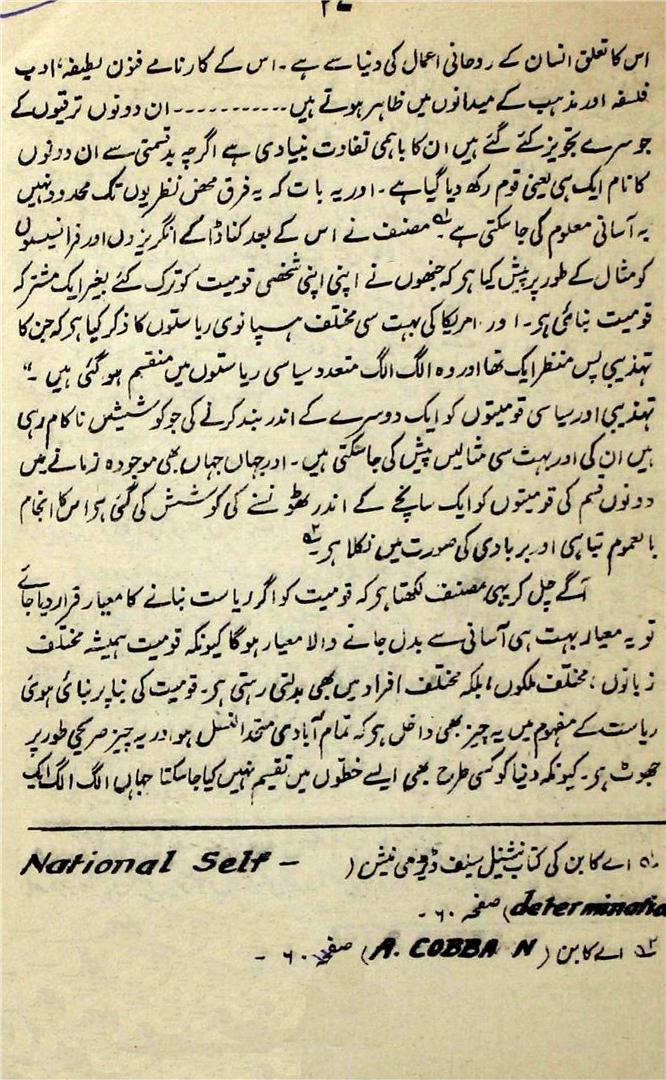 ۲۷
اس کا تعلق انسان کے روحانی اعمال کی دنیا سے ہے ۔ اس کے کارنامے فنون لطیفہ، ادب
فلسفہ اور مذہب کے میدانوں میں ظاہر ہوتے ہیں ۔۔۔۔۔۔۔۔۔۔۔ ان دونوں ترقیوں کے
جو سرے تجویز کئے گئے ہیں ان کا باہمی تفاوت بنیادی ہے اگرچہ بدقسمتی سے ان دونوں
کا نام ایک ہی یعنی قوم رکھ دیا گیا ہے ۔ اور یہ بات کہ یہ فرق محض نظریوں تک محدود نہیں
بہ آسانی معلوم کی جا سکتی ہے ؂۱ مصنف نے اس کے بعد کناڈا کے انگریزوں اور فرانسیسیوں
کو مثال کے طور پر پیش کیا ہے کہ جنھوں نے اپنی اپنی شخصی قومیت کو ترک کئے بغیر ایک مشترکہ
قومیت بنائی ہے ۔ اور امریکا کی بہت سی مختلف ہسپانوی ریاستوں کا ذکر کیا ہے کہ جن کا
تہذیبی پس منظر ایک تھا اور وہ الگ الگ متعدد سیاسی ریاستوں میں منقسم ہو گئی ہیں ۔"
تہذیبی اور سیاسی قومیتوں کو ایک دوسرے کے اندر بند کرنے کی جو کوششیں ناکام رہی
ہیں ان کی اور بہت سی مثالیں پیش کی جا سکتی ہیں ۔ اور جہاں جہاں بھی موجودہ زمانے میں
دونوں قسم کی قومیتوں کو ایک سانچے کے اندر ٹھونسنے کی کوشش کی گئی ہے اس کا انجام
بالعموم تباہی اور بربادی کی صورت میں نکلا ہے ؂۲
آگے چل کر یہی مصنف لکھتا ہے کہ قومیت کو اگر ریاست بنانے کا معیار قرار دیا جائے
تو یہ معیار بہت ہی آسانی سے بدل جانے والا معیار ہوگا کیونکہ قومیت ہمیشہ مختلف
زبانوں ، مختلف ملکوں ، بلکہ مختلف افراد میں بھی بدلتی رہتی ہے ۔ قومیت کی بنا پر بنائی ہوئی
ریاست کے مفہوم میں یہ چیز بھی داخل ہے کہ تمام آبادی متحد النسل ہو اور یہ چیز صریحی طور پر
جھوٹ ہے ۔ کیونکہ دنیا کو کسی طرح بھی ایسے خطوں میں تقسیم نہیں کیا جا سکتا جہاں الگ الگ ایک
؂۱ اے کابن کی کتاب نیشنل سیلف ڈیٹرمی نیشن ( National Self -
determinatio) صفحہ ۶۰ ۔
؂۲ اے کابن ( A. COBBAN ) صفحہ ۶۰ ۔